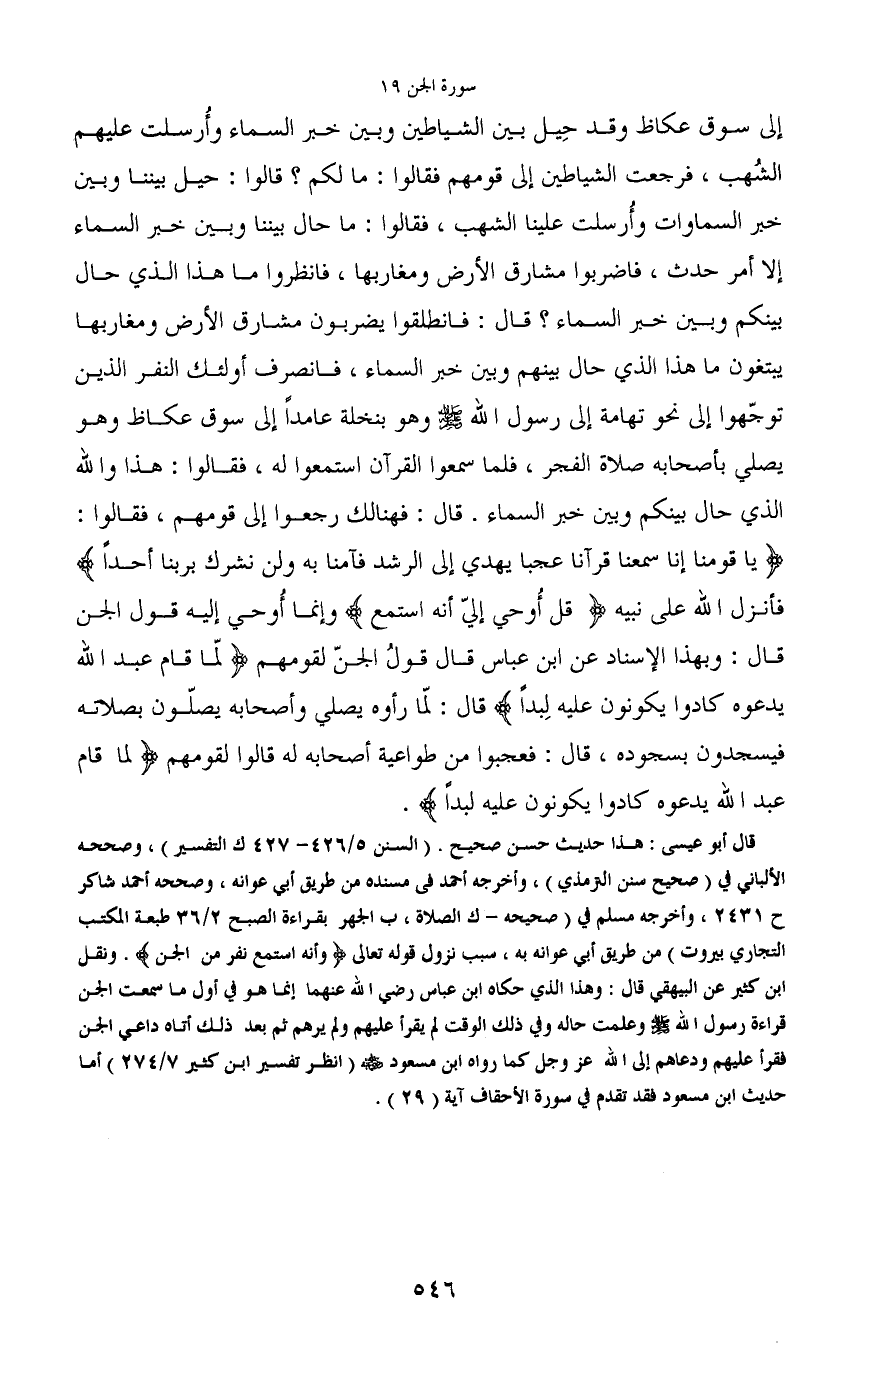 سورة الجن ١٩
إلى سوق عكاظ وقد حِيل بين الشياطين وبين خبر السماء وأُرسلت عليهم
الشُهب ، فرجعت الشياطين إلى قومهم فقالوا : ما لكم ؟ قالوا : حيل بيننا وبين
خبر السماوات وأُرسلت علينا الشهب ، فقالوا : ما حال بيننا وبين خبر السماء
إلا أمر حدث ، فاضربوا مشارق الأرض ومغاربها ، فانظروا ما هذا الذي حال
بينكم وبين خبر السماء ؟ قال : فانطلقوا يضربون مشارق الأرض ومغاربها
يبتغون ما هذا الذي حال بينهم وبين خبر السماء ، فانصرف أولئك النفر الذين
توجّهوا إلى نحو تهامة إلى رسول الله ﷺ وهو بنخلة عامداً إلى سوق عكاظ وهو
يصلي بأصحابه صلاة الفجر ، فلما سمعوا القرآن استمعوا له ، فقالوا : هذا والله
الذي حال بينكم وبين خبر السماء . قال : فهنالك رجعوا إلى قومهم ، فقالوا :
﴿ يا قومنا إنا سمعنا قرآنا عجبا يهدي إلى الرشد فآمنا به ولن نشرك بربنا أحداً ﴾
فأنزل الله على نبيه ﴿ قل أُوحي إليّ أنه استمع ﴾ وإنما أُوحي إليه قول الجن
قال : وبهذا الإسناد عن ابن عباس قال قولُ الجنّ لقومهم ﴿ لمّا قام عبد الله
يدعوه كادوا يكونون عليه لِبداً ﴾ قال : لمّا رأوه يصلي وأصحابه يصلّون بصلاته
فيسجدون بسجوده ، قال : فعجبوا من طواعية أصحابه له قالوا لقومهم ﴿ لما قام
عبد الله يدعوه كادوا يكونون عليه لبداً ﴾ .
قال أبو عيسى : هذا حديث حسن صحيح . ( السنن ٤٢٦/٥– ٤٢٧ ك التفسير ) ، وصححه
الألباني في ( صحيح سنن الترمذي ) ، وأخرجه أحمد فى مسنده من طريق أبي عوانه ، وصححه أحمد شاكر
ح ٢٤٣١ ، وأخرجه مسلم في ( صحيحه – ك الصلاة ، ب الجهر بقراءة الصبح ٣٦/٢ طبعة المكتب
التجاري بيروت ) من طريق أبي عوانه به ، سبب نزول قوله تعالى ﴿ وأنه استمع نفر من الجن ﴾ . ونقل
ابن كثير عن البيهقي قال : وهذا الذي حكاه ابن عباس رضي الله عنهما إنما هو في أول ما سمعت الجن
قراءة رسول الله ﷺ وعلمت حاله وفي ذلك الوقت لم يقرأ عليهم ولم يرهم ثم بعد ذلك أتاه داعي الجن
فقرأ عليهم ودعاهم إلى الله عز وجل كما رواه ابن مسعود ( انظر تفسير ابن كثير ٢٧٤/٧ ) أما
حديث ابن مسعود فقد تقدم في سورة الأحقاف آية ( ٢٩ ) .
٥٤٦